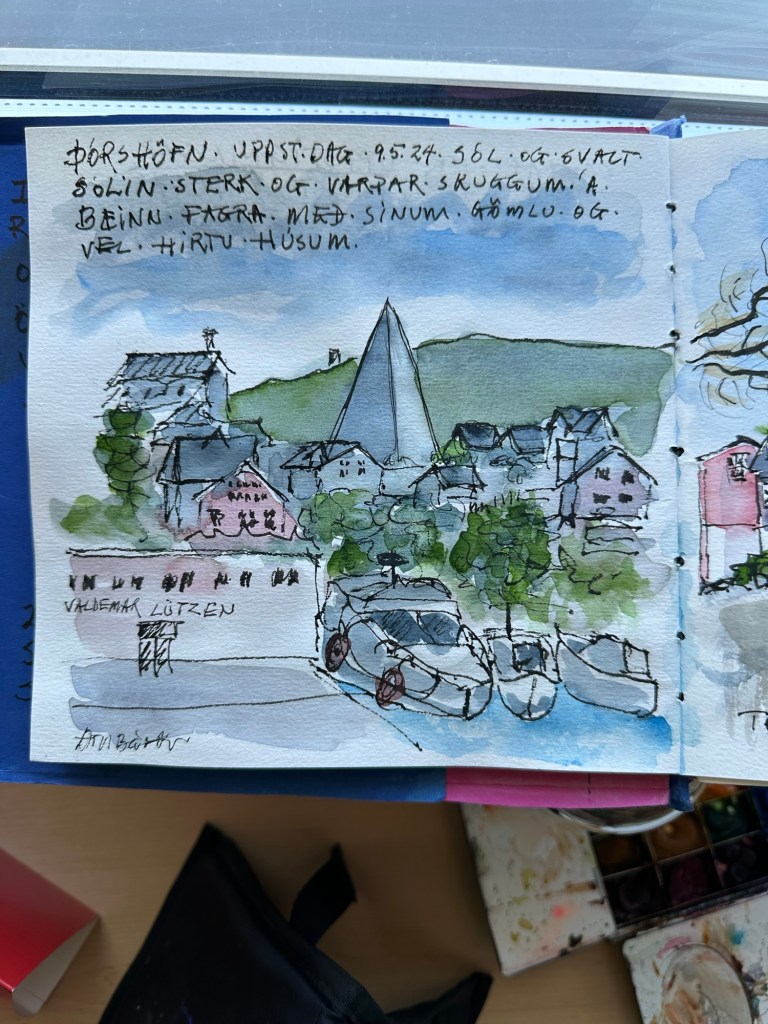 ÞÓRSHÖFN · UPPST.DAG · 9.5.24. SÓL · OG · SVALT.
SÓLIN · STERK · OG · VARPAR · SKUGGUM · Á.
BEINN · FAGRA · MEÐ · SÍNUM · GÖMLU · OG ·
VEL · HIRTU · HÚSUM.
VALDEMAR LÜTZEN